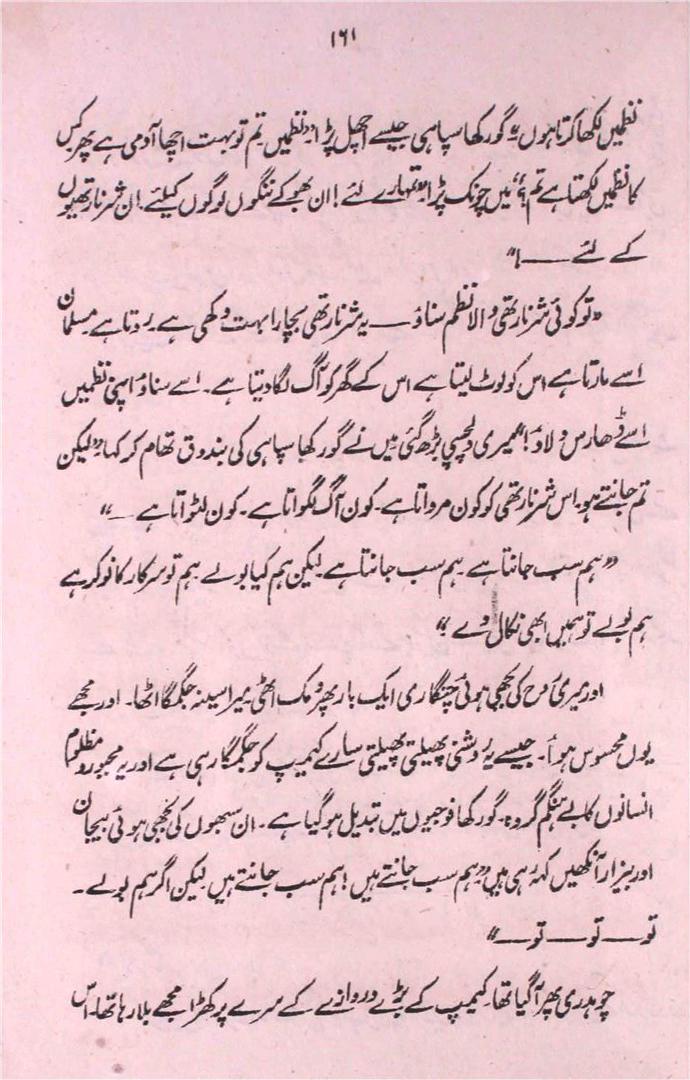 ۱۶۱
نظمیں لکھا کرتا ہوں“ گورکھا سپاہی جیسے اچھل پڑا ”نظمیں تم تو بہت اچھا آدمی ہے پھر کس
کا نظمیں لکھتا ہے تم؟“ میں چونک پڑا ”تمہارے لئے! ان بھوکے ننگوں لوگوں کیلئے۔ ان شرنارتھیوں
کے لئے ــــ!“
”تو کوئی شرنارتھی والا نظم سناؤ ــــ یہ شرنارتھی بیچارا بہت دکھی ہے۔ روتا ہے۔ مسلمان
اسے مارتا ہے اس کو لوٹ لیتا ہے اس کے گھر کو آگ لگا دیتا ہے۔ اسے سناؤ اپنی نظمیں
اسے ڈھارس دلاؤ!“ میری دلچسپی بڑھ گئی میں نے گورکھا سپاہی کی بندوق تھام کر کہا ”لیکن
تم جانتے ہو۔ اس شرنارتھی کو کون مرواتا ہے۔ کون آگ لگواتا ہے۔ کون لٹواتا ہے ــ“
”ہم سب جانتا ہے۔ ہم سب جانتا ہے۔ لیکن ہم کیا بولے۔ ہم تو سرکار کا نوکر ہے
ہم بولے تو ہمیں ابھی نکال دے۔“
اور میری روح کی بجھی ہوئی چنگاری ایک بار پھر دمک اٹھی۔ میرا سینہ جگمگا اٹھا۔ اور مجھے
یوں محسوس ہوا۔ جیسے یہ روشنی پھیلتی پھیلتی سارے کیمپ کو جگمگا رہی ہے اور یہ مجبور و مظلوم
انسانوں کا بے ہنگم گروہ۔ گورکھا فوجیوں میں تبدیل ہو گیا ہے۔ ان سبھوں کی بجھی ہوئی بیجان
اور بیزار آنکھیں کہہ رہی ہیں ”ہم سب جانتے ہیں! ہم سب جانتے ہیں لیکن اگر ہم بولے۔
تو ــــ تو ــــ تو ــــ“
چوہدری پھر آگیا تھا۔ کیمپ کے بڑے دروازے کے سرے پر کھڑا مجھے بلا رہا تھا۔ اس